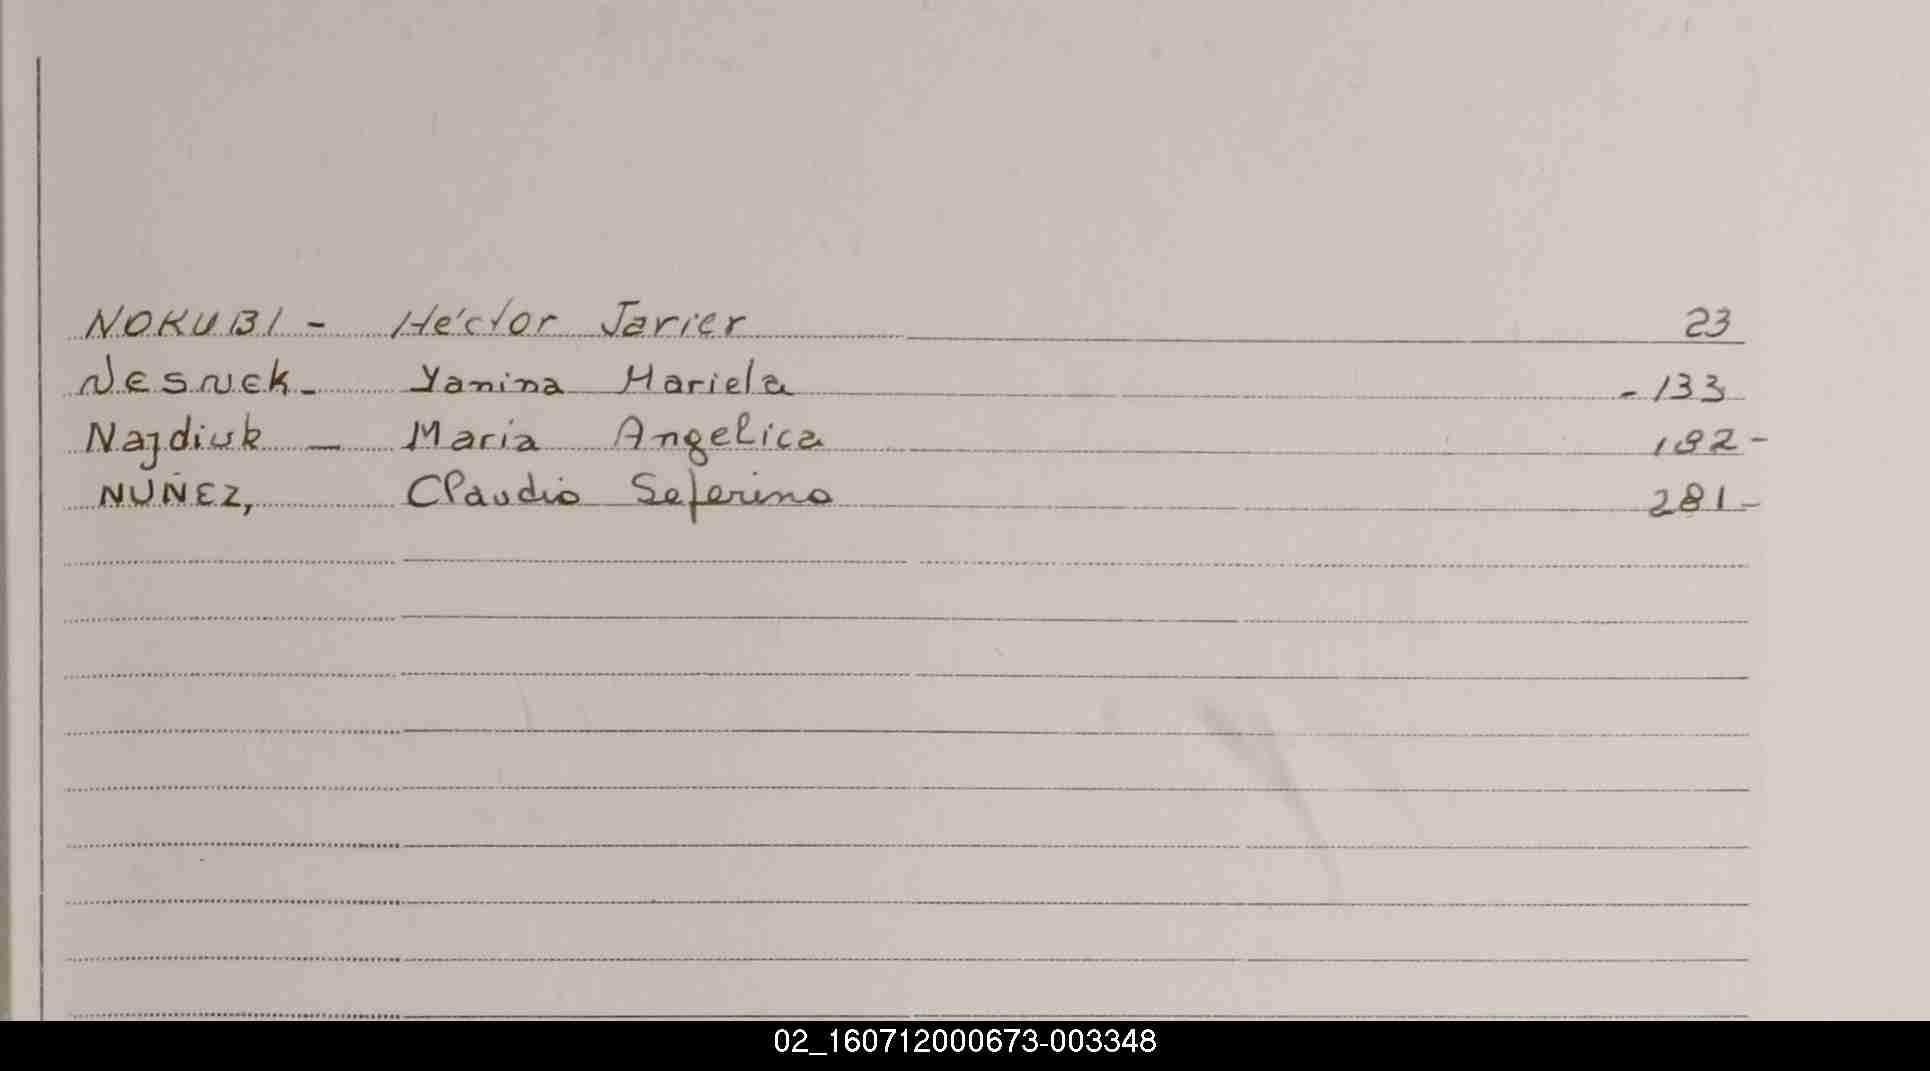 NOKUBI - Héctor Javier 23
Nesnek - Yanina Mariela - 133
Najdiuk - Maria Angelica 192 -
NUÑEZ, Claudio Seferino 281 -
02_160712000673-003348